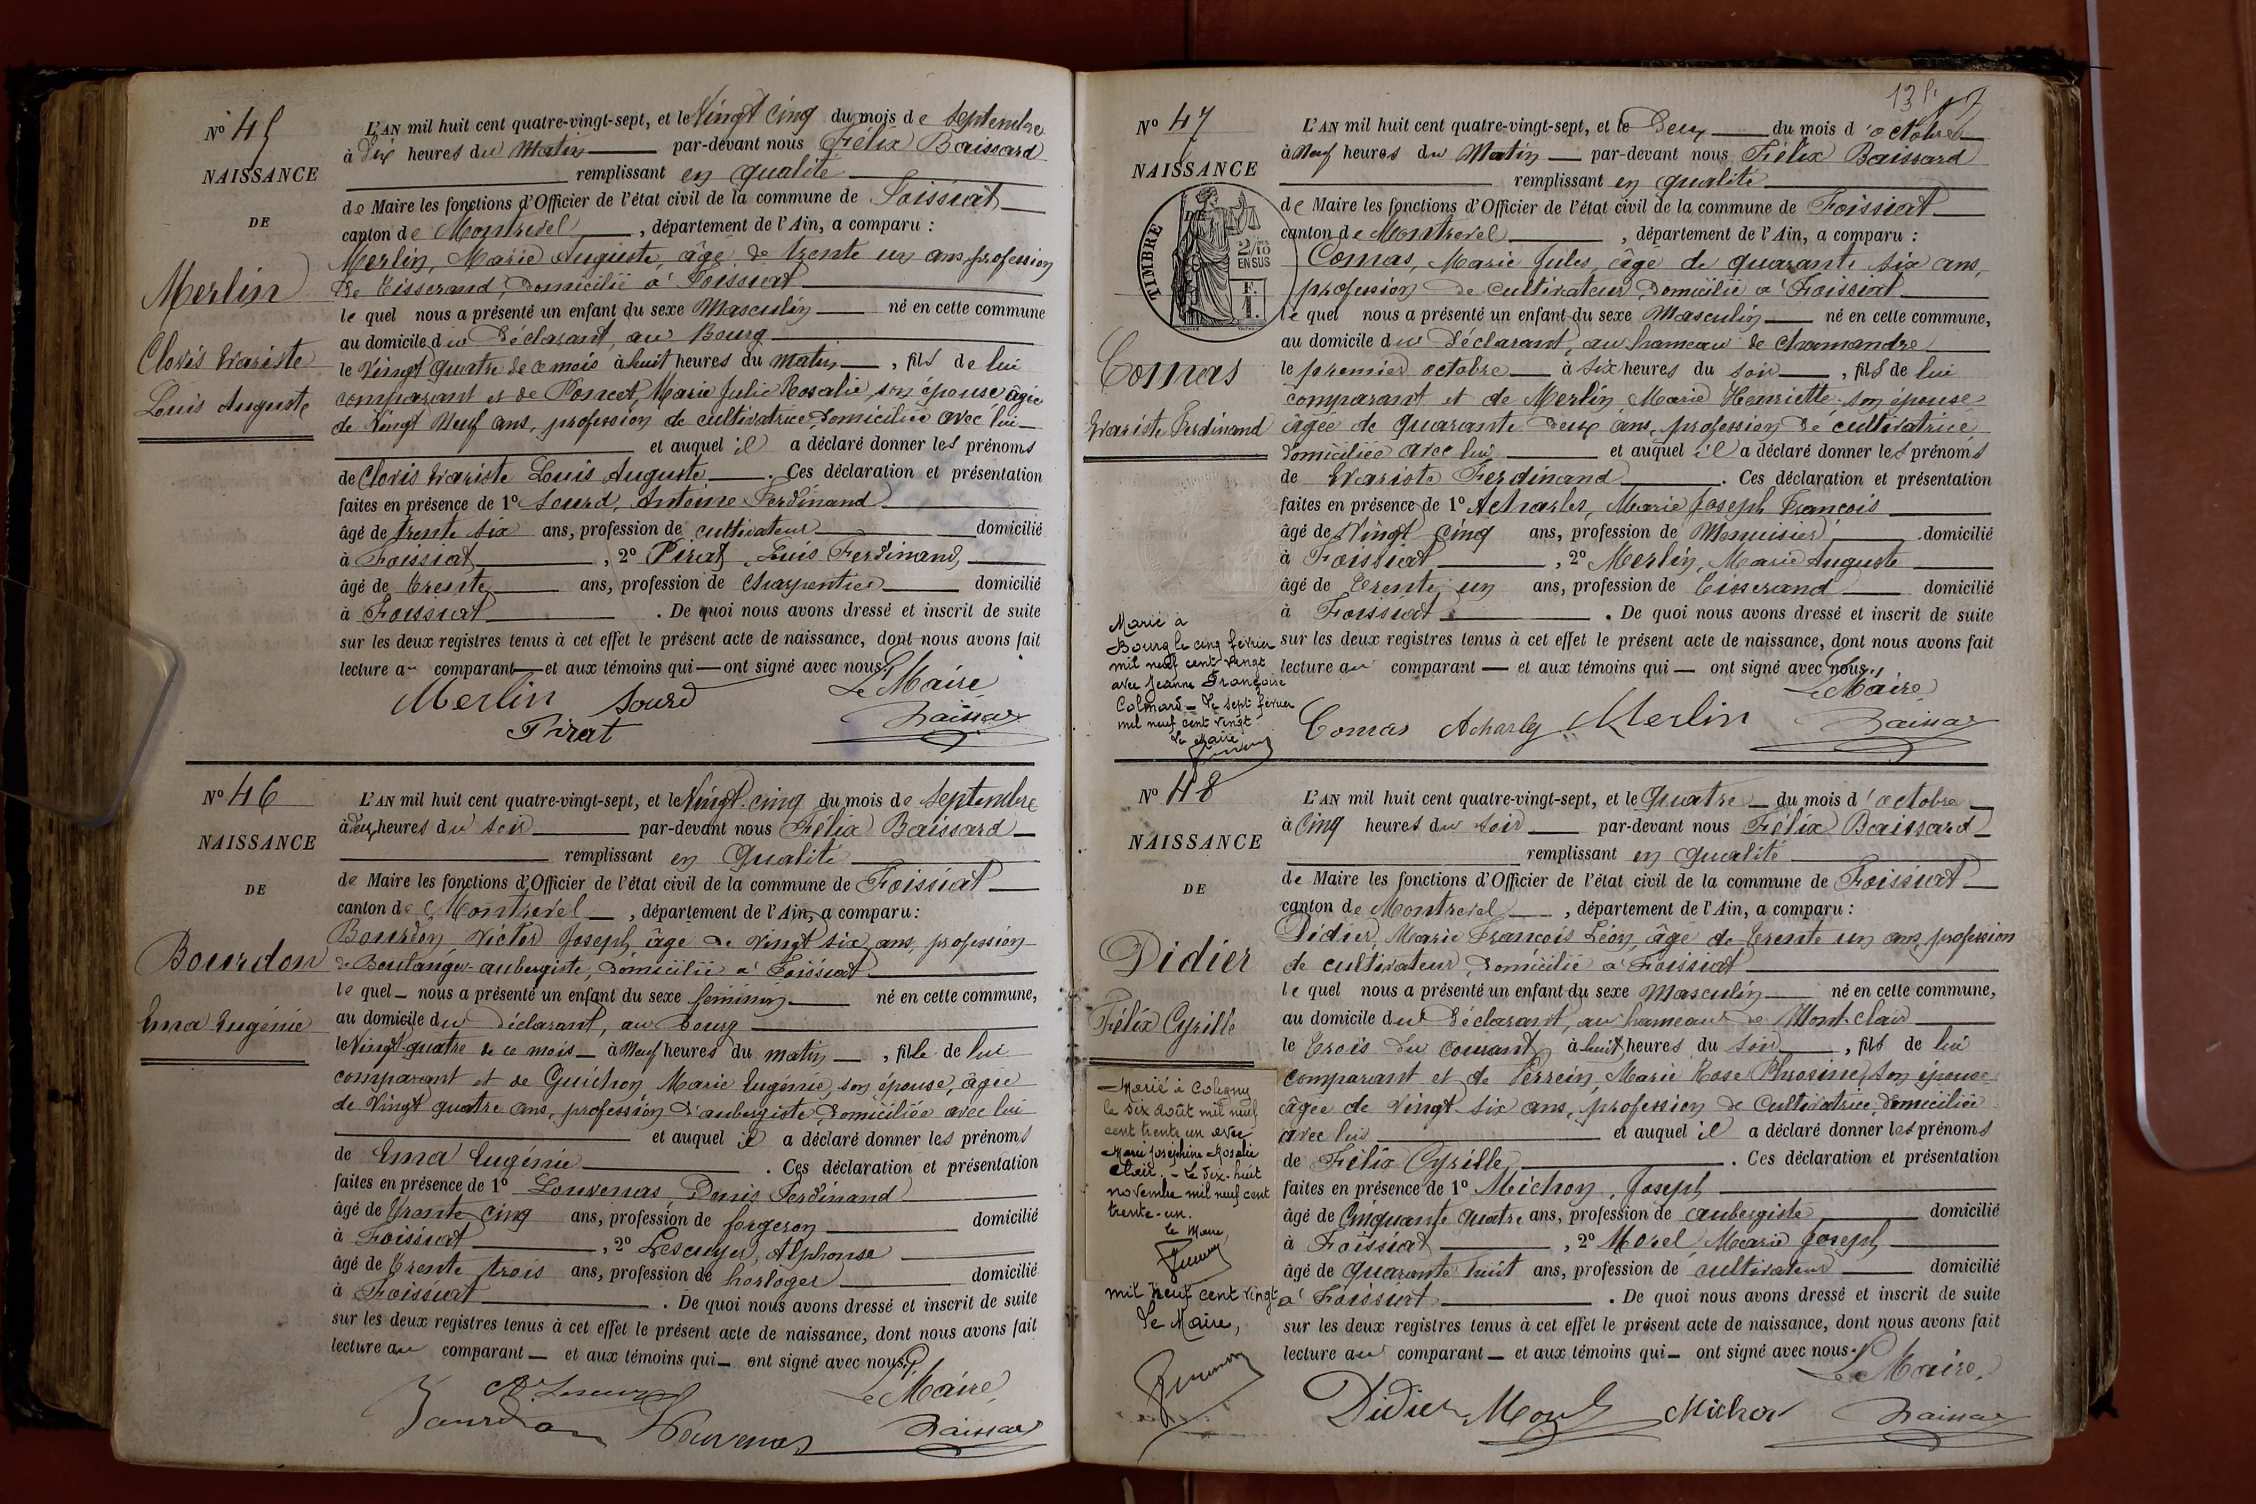 N° 45
NAISSANCE
DE
Merlin
Clovis Evariste
Louis Auguste
L'AN mil huit cent quatre-vingt-sept, et le Vingt cinq du mois de septembre
à dix heures du Matin par-devant nous Félix Baissard
remplissant en qualité
de Maire les fonctions d'Officier de l'état civil de la commune de Foissiat
canton de Montrevel, département de l'Ain, a comparu :
Merlin, Marie Auguste, âgé de trente un ans, profession
de tisserand, domicilié à Foissiat
le quel nous a présenté un enfant du sexe Masculin né en cette commune
au domicile du déclarant, au Bourg
le Vingt quatre de ce mois à huit heures du matin, fils de lui
comparant et de Poncet, Marie Julie Rosalie, son épouse âgée
de Vingt Neuf ans, profession de cultivatrice, domiciliée avec lui
et auquel il a déclaré donner les prénoms
de Clovis Evariste Louis Auguste. Ces déclaration et présentation
faites en présence de 1° Sourd, Antoine Ferdinand
âgé de trente six ans, profession de cultivateur domicilié
à Foissiat, 2° Pirat, Louis Ferdinand,
âgé de trente ans, profession de Charpentier domicilié
à Foissiat. De quoi nous avons dressé et inscrit de suite
sur les deux registres tenus à cet effet le présent acte de naissance, dont nous avons fait
lecture au comparant et aux témoins qui ont signé avec nous.
Le Maire,
Merlin Sourd
Pirat Baissard
N° 46
NAISSANCE
DE
Bourdon
Ema Eugénie
L'AN mil huit cent quatre-vingt-sept, et le Vingt-cinq du mois de septembre
à deux heures du soir par-devant nous Félix Baissard
remplissant en qualité
de Maire les fonctions d'Officier de l'état civil de la commune de Foissiat
canton de Montrevel, département de l'Ain, a comparu :
Bourdon, Victor Joseph, âgé de vingt six ans, profession
de Boulanger-aubergiste, domicilié à Foissiat
le quel nous a présenté un enfant du sexe féminin né en cette commune,
au domicile du déclarant, au bourg
le Vingt-quatre de ce mois à Neuf heures du matin, fille de lui
comparant et de Guichon Marie Eugénie, son épouse, âgée
de Vingt quatre ans, profession d'aubergiste, domiciliée avec lui
et auquel il a déclaré donner les prénoms
de Ema Eugénie. Ces déclaration et présentation
faites en présence de 1° Louvenas, Denis Ferdinand
âgé de trente cinq ans, profession de forgeron domicilié
à Foissiat, 2° Lescuyer, Alphonse
âgé de trente trois ans, profession de horloger domicilié
à Foissiat. De quoi nous avons dressé et inscrit de suite
sur les deux registres tenus à cet effet le présent acte de naissance, dont nous avons fait
lecture au comparant et aux témoins qui ont signé avec nous.
Le Maire,
Bourdon Louvenas Baissard
135
N° 47
NAISSANCE
DE
TIMBRE
2/10
EN SUS
F.
1.
Comas
Evariste Ferdinand
L'AN mil huit cent quatre-vingt-sept, et le Deux du mois d'octobre
à Neuf heures du Matin par-devant nous Félix Baissard
remplissant en qualité
de Maire les fonctions d'Officier de l'état civil de la commune de Foissiat
canton de Montrevel, département de l'Ain, a comparu :
Comas, Marie Jules, âgé de quarante six ans,
profession de cultivateur, domicilié à Foissiat
le quel nous a présenté un enfant du sexe Masculin né en cette commune,
au domicile du déclarant, au hameau de Chamandre
le premier octobre à six heures du soir, fils de lui
comparant et de Merlin, Marie Henriette son épouse
âgée de quarante deux ans, profession de cultivatrice
domiciliée avec lui et auquel il a déclaré donner les prénoms
de Evariste Ferdinand. Ces déclaration et présentation
faites en présence de 1° Acharles, Marie Joseph François
âgé de Vingt cinq ans, profession de Menuisier domicilié
à Foissiat, 2° Merlin, Marie Auguste
âgé de trente un ans, profession de tisserand domicilié
à Foissiat. De quoi nous avons dressé et inscrit de suite
sur les deux registres tenus à cet effet le présent acte de naissance, dont nous avons fait
lecture au comparant et aux témoins qui ont signé avec nous.
Le Maire
Comas Acharles Merlin Baissard
Marié à
Bourg le cinq février
mil neuf cent vingt
avec Jeanne Françoise
Colmard – Le sept février
mil neuf cent vingt
Le Maire
N° 48
NAISSANCE
DE
Didier
Félix Cyrille
L'AN mil huit cent quatre-vingt-sept, et le Quatre du mois d'octobre
à Cinq heures du soir par-devant nous Félix Baissard
remplissant en qualité
de Maire les fonctions d'Officier de l'état civil de la commune de Foissiat
canton de Montrevel, département de l'Ain, a comparu :
Didier, Marie François Léon, âgé de trente un ans, profession
de cultivateur, domicilié à Foissiat
le quel nous a présenté un enfant du sexe Masculin né en cette commune,
au domicile du déclarant, au hameau de Mont-clair
le trois du courant à huit heures du soir, fils de lui
comparant et de Perrein, Marie Rose Phrosine, son épouse
âgée de vingt-six ans, profession de Cultivatrice, domiciliée
avec lui et auquel il a déclaré donner les prénoms
de Félix Cyrille. Ces déclaration et présentation
faites en présence de 1° Michon, Joseph
âgé de Cinquante quatre ans, profession de aubergiste domicilié
à Foissiat, 2° Morel, Marie Joseph
âgé de quarante huit ans, profession de cultivateur domicilié
à Foissiat. De quoi nous avons dressé et inscrit de suite
sur les deux registres tenus à cet effet le présent acte de naissance, dont nous avons fait
lecture au comparant et aux témoins qui ont signé avec nous.
Le Maire,
Didier Morel Michon Baissard
Marié à Coligny
le six août mil neuf
cent trente un avec
Marie Joséphine Rosalie
Clair. – Le dix-huit
novembre mil neuf cent
trente-un.
le Maire,
mil neuf cent vingt
Le Maire,